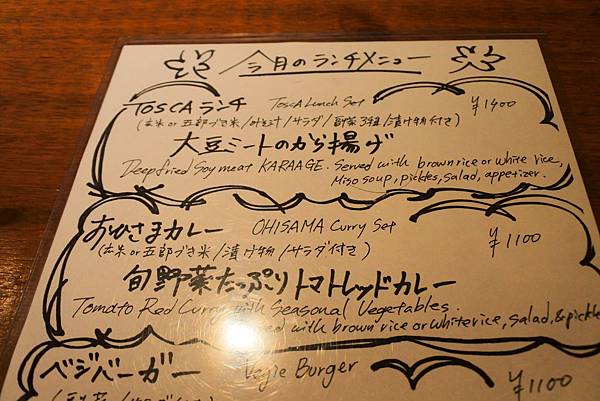 今月のランチメニュー
TOSCAランチ TOSCA Lunch Set ¥1400
(玄米 or 五部づき米/みそ汁/サラダ/副菜3種/漬け物付き)
大豆ミートのから揚げ
Deepfried Soymeat KARAAGE. Served with brown rice or white rice,
Miso soup, pickles, salad, appetizer.
おひさまカレー OHISAMA Curry Set ¥1100
(玄米 or 五部づき米/漬け物/サラダ付き)
旬野菜たっぷりトマトレッドカレー
Tomato Red Curry with Seasonal Vegetables.
with brown rice or white rice, salad, & pickle
ベジバーガー Vegie Burger ¥1100